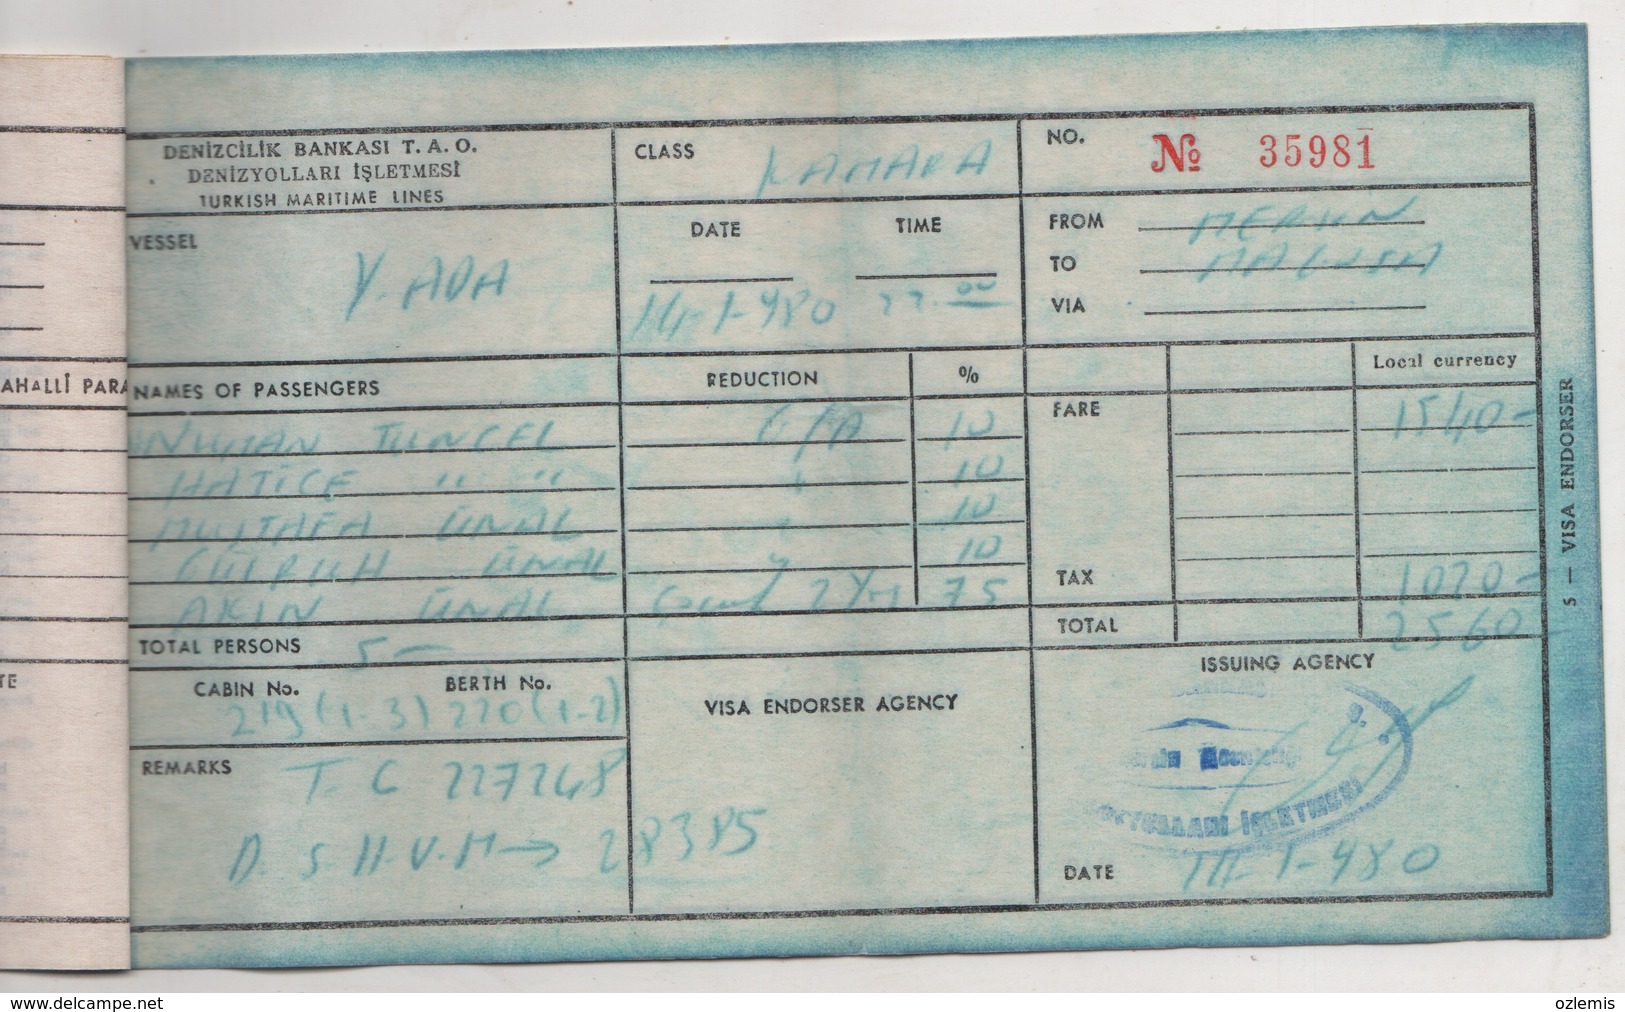 DENİZCİLİK BANKASI T. A. O.
DENİZYOLLARI İŞLETMESİ
TURKISH MARITIME LINES
CLASS KAMARA
NO. № 35981
VESSEL
Y. ADA
DATE TIME
14-1-980 22.00
FROM MERSIN
TO MAGUSA
VIA
AHALLÎ PARA
NAMES OF PASSENGERS
REDUCTION %
Local currency
NUMAN TUNCEL G/A 10
FARE 1540-
HATİCE " " " 10
MUSTAFA ÜNAL " 10
GÜLRUH ÜNAL " 10
AKIN ÜNAL 75
TAX 1020-
TOTAL PERSONS 5-
TOTAL 2560-
TE
CABIN No. BERTH No.
219 (1-3) 220 (1-2)
VISA ENDORSER AGENCY
ISSUING AGENCY
REMARKS T. C 227248
D. S. H. V. M → 28385
İŞLETMESİ
DATE 14-1-980
5 — VISA ENDORSER
www.delcampe.net
ozlemis